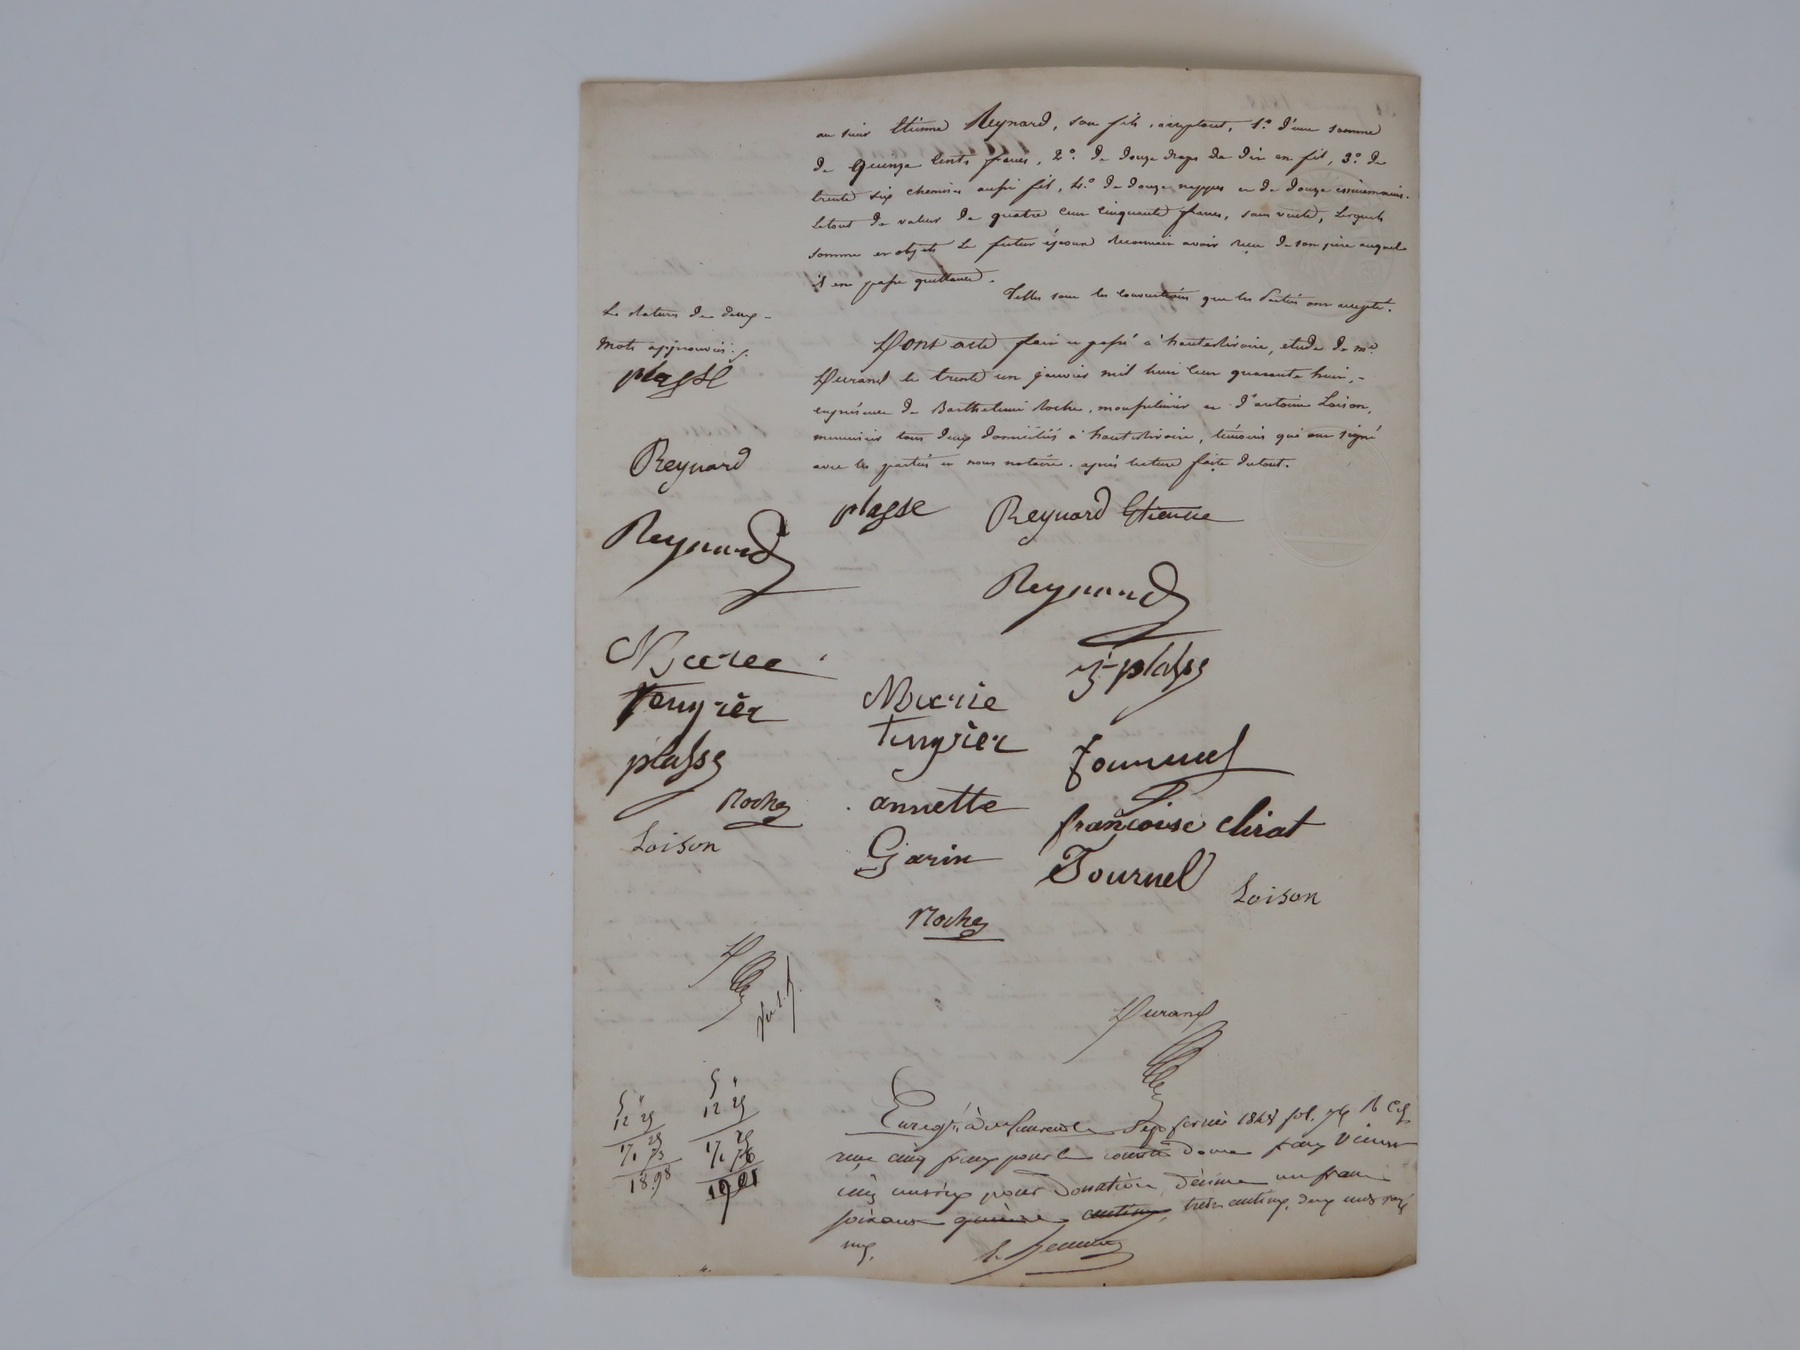 au sieur Etienne Reynard, son fils, acceptant, 1.° d'une somme
de quinze Cents francs, 2.° de douze draps de lit en fil, 3.° de
trente six chemises aussi fil, 4.° de douze nappes et de douze essuiemains.
Le tout de valeur de quatre cent cinquante francs, sans vente, lesquels
somme et objets le futur époux reconnait avoir reçu de son père auquel
il en passe quittance.
Telles sont les conventions que les Parties ont accepté.
La rature de deux
mots approuvée
plasse
Dont acte fait et passé à hauterivoire, étude de m.e
Durand le trente un janvier mil huit cent quarante huit,
en présence de Barthelemi Roche, et d'antoine Loison,
menuisier tous deux domiciliés à hauterivoire, témoins qui ont signé
avec les parties et nous notaire. après lecture faite du tout.
Reynard
plasse Reynard Etienne
Reynard
Reynard
Marie
plasse
Marie
plasse
Roche
annette
françoise Chirat
Loison
Garin
Tournel
Loison
Roche
Durand
5 "
12 25
17 25
1 73
18.98
5 "
12 25
17 25
1 76
19 01
Enregistré à sept février 1848 fol.
reçu cinq francs pour le douze francs vingt
cinq centimes pour Donation, décime un franc
soixante treize centimes,